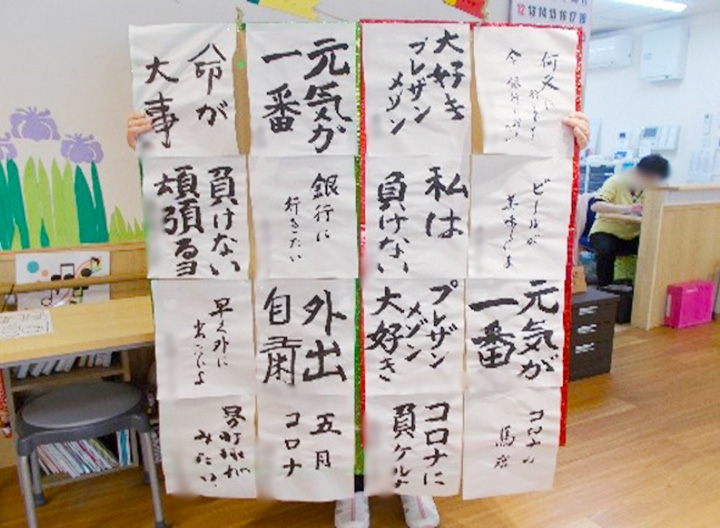 12 13 14 15 16 17 18
大好き
プレザン
メゾン
元気が
一番
命が
大事
ビールが
私は
負けない
銀行に
行きたい
負けない
頑張るヨ
元気が
一番
プレザン
メゾン
大好き
外出
自粛
早く外に
コロナの
コロナに
負ケルナ
五月
コロナ
みたい